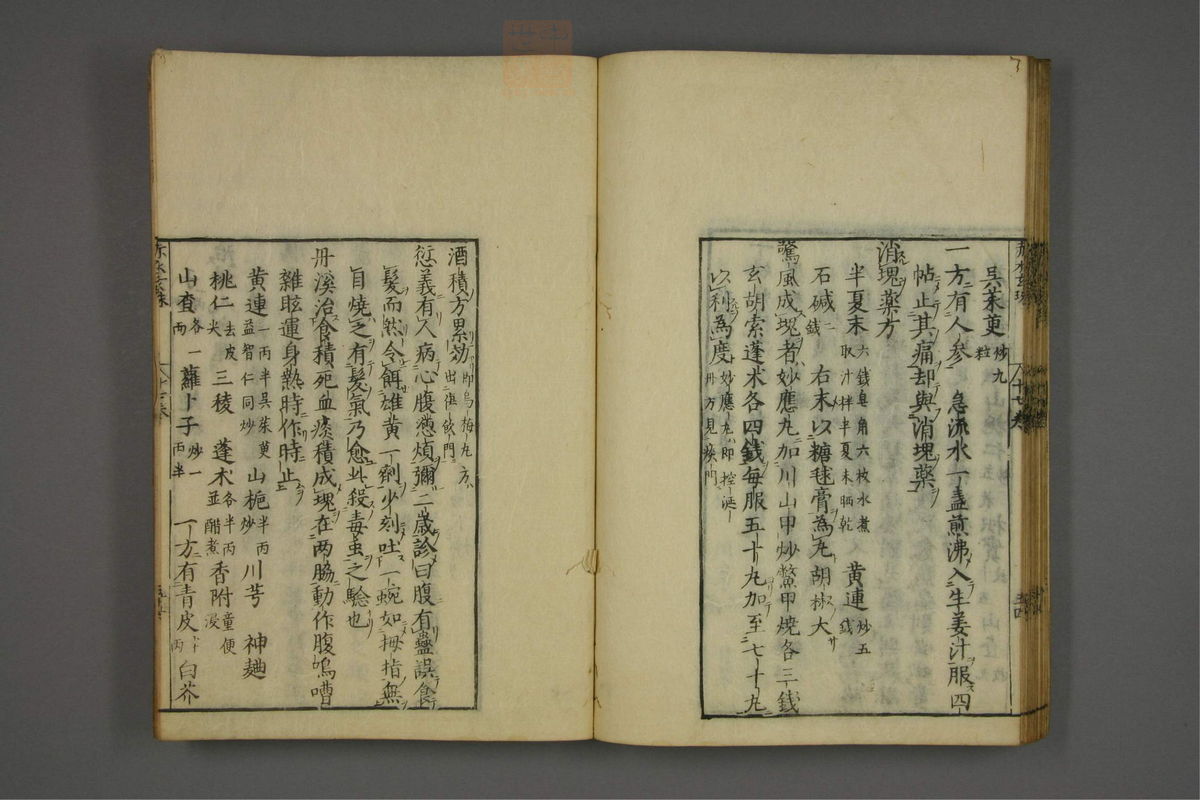 吳茱萸炒九粒
一方有人参 急流水一盞煎沸入生姜汁服四
帖止其痛却與消塊藥
消塊藥方
半夏末六錢皂角六枚水煮取汁拌半夏末晒乾 黄連炒五錢
石碱二錢 右末以糖毬膏為丸胡椒大
驚風成塊者妙應丸加川山甲炒鱉甲燒各三錢
玄胡索蓬朮各四錢每服五十丸加至七十丸
以利為度妙應丸即控涎丹方見痰門
酒積方累効即烏梅丸方出傷飲門
愆義有人病心腹懣煩彌二歲診曰腹有蠱誤食
髮而然令餌雄黄一劑少刻吐一蜿如拇指無
目燒之有髮氣乃愈此殺毒虫之驗也
丹溪治食積死血痰積成塊在两脇動作腹鳴嘈
雜眩運身熱時作時止
黄連一两半吳茱萸益智仁同炒 山梔半两炒 川芎 神麯
桃仁去皮尖 三稜 蓬朮各半两並醋煮 香附童便浸
山査各一两 蘿卜子炒一两半 一方有青皮 白芥